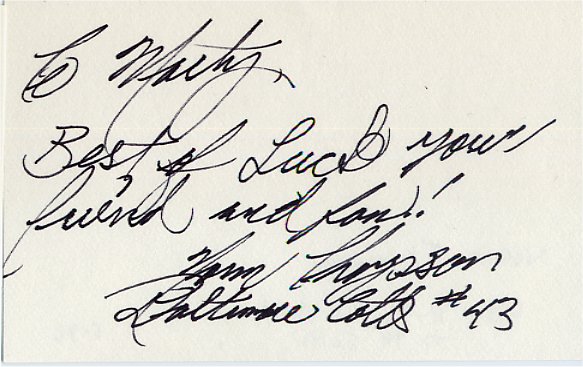 To Marty,
Best of Luck your
friend and fan!!
Norm Thompson
Baltimore Colts #43